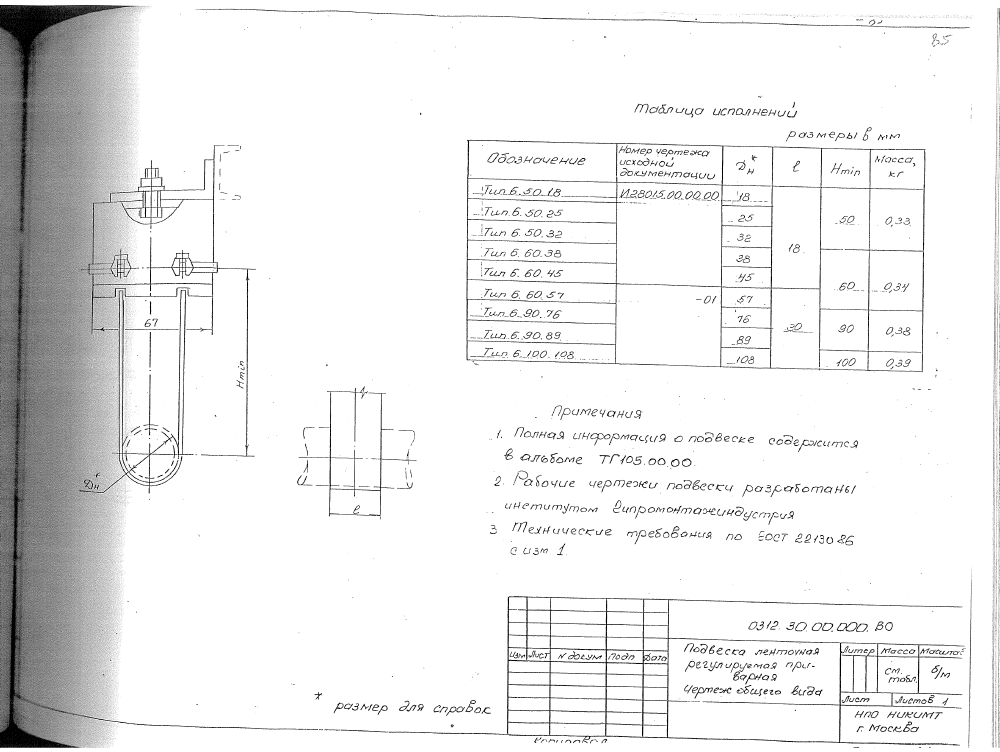 85
Таблица исполнений
размеры в мм
Обозначение
Номер чертежа
исходной
документации
Dн*
ℓ
Hmin
Масса,
кг
Тип 6. 50. 18
И28015.00.00.00
18
18
50
0,33
Тип 6. 50. 25
25
Тип 6. 50. 32
32
Тип 6. 60. 38
38
60
0,34
Тип 6. 60. 45
45
Тип 6. 60. 57
-01
57
30
Тип 6. 90. 76
76
90
0,38
Тип 6. 90. 89
89
Тип 6. 100. 108
108
100
0,39
67
Hmin
Dн*
ℓ
Примечания
1. Полная информация о подвеске содержится
в альбоме ТГ105.00.00.
2. Рабочие чертежи подвески разработаны
институтом Гипромонтажиндустрия
3 Технические требования по ГОСТ 22130 86
с изм 1.
* размер для справок
0312. 30. 00. 000. ВО
Изм
Лист
N докум
Подп
Дата
Подвеска ленточная
регулируемая при-
варная
Чертеж общего вида
Литер
Масса
Масштаб
см.
табл.
б/м
Лист
Листов 1
НПО НИКИМТ
г. Москва
Копировал